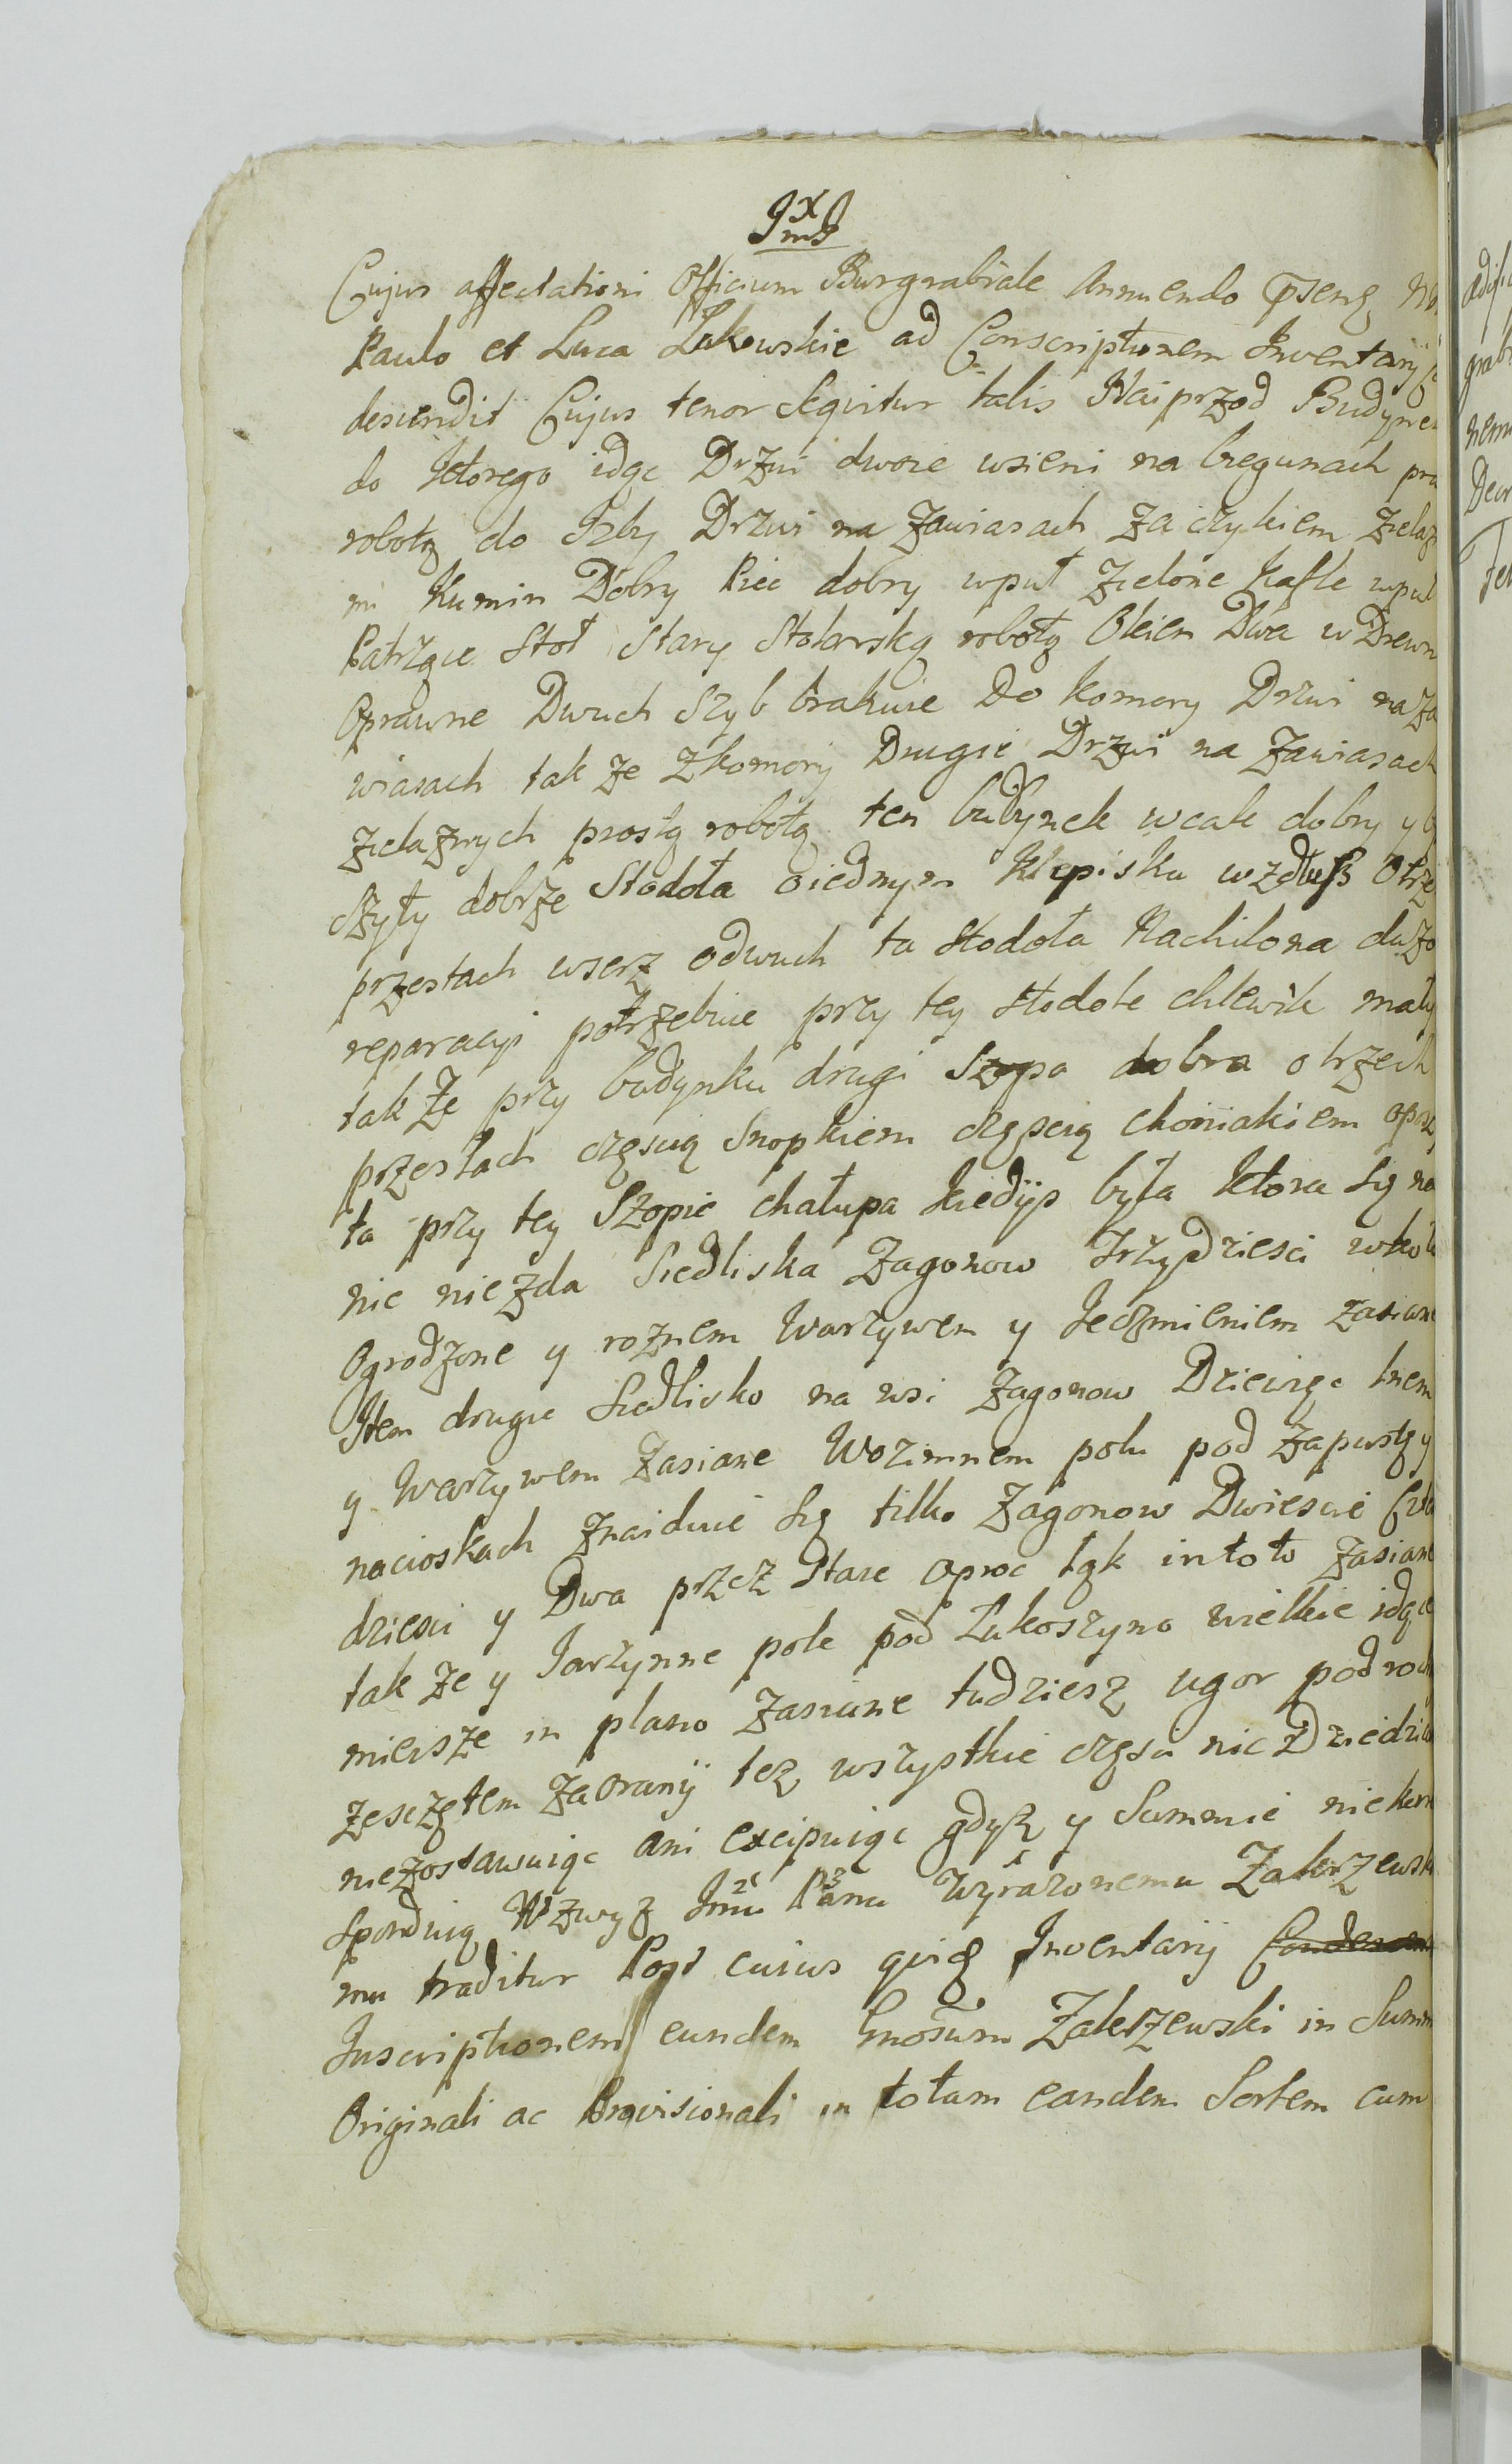 Cujus affectationi Officium Burgrabiale Annuendo
Paulo et Luca Łukowskie ad Conscriptionem Inventarij
descendit Cujus tenor sequitur talis Naiprzod Budynek
do ktorego idąc Drzwi dwoie wsieni na biegunach pro
robotą do Izby Drzwi na zawiasach zaiczykiem zielaz
mi Kumin Dobry Piec dobry wpuł zielone kafle wpuł
Patrząc Stoł Stary Stolarską robotą Okien Dwa w Drewn
Oprawne Dwuch szyb brakuie Do komory Drzwi na za
wiasach tak ze zkomory Drugie Drzwi na zawiasach
zielaznych prostą robotą ten budynek wcale dobry y
szyty dobrze Stodoła oiednym klepisku wzdłusz Otrze
przestach wserz odwuch ta stodoła Nachilona duzo
reparacyi potrzebuie przy tey stodole chlewik mały
tak ze przy budynku drugi Szopa dobra otrzech
przesłach częscią Snopkiem częscią choiniakiem
ta przy tey Szopie chałupa kiedys była ktora się na
nic niezda Siedliska Zagonow Trzydziesci wkoło
Ogrodzone y roznem Warzywem y Jeczmieniem zasiane
Item drugie Siedlisko na wsi Zagonow Dziewięc lnem
y Warzywem zasiane Wozimnem polu pod zapustą y
nacioskach znaiduie się tilko zagonow Dwiescie
dziesci y Dwa przez stare oproc łąk in toto zasiane
tak ze y Jarzynne pole pod Łukoszyno wielkie idące
mieisze in plano zasiane tudziesz ugor pod rok
zesczętem zaorany tez wszystkie częsci nic Dziedzi
niezostawuiąc ani excipuiąc gdysz y Summie niekor
sponduią Wzwyz Jmu Panu Wyrazonemu Zakrzewsk
mu traditur Post cuius quidem Inventarij
Inscriptionem eundem Gnosum Zakrzewski in Summ
Originali ac Provisionali in totam eandem Sortem cum